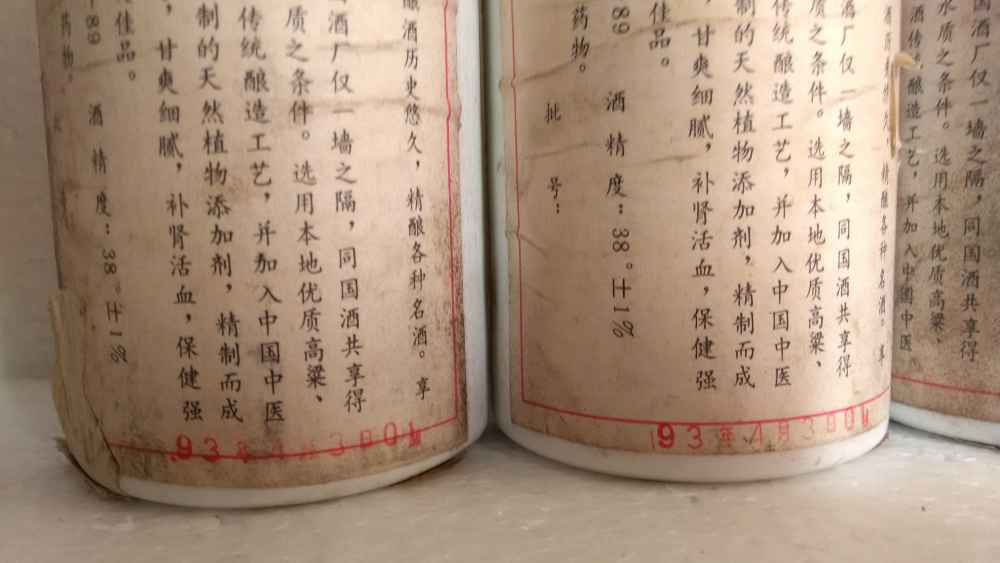 酿酒历史悠久，精酿各种名酒。享
酒厂仅一墙之隔，同国酒共享得
质之条件。选用本地优质高粱、
传统酿造工艺，并加入中国中医
制的天然植物添加剂，精制而成
甘爽细腻，补肾活血，保健强
佳品。
酒精度：38°±1%
89
药物。
93年4月3日01
精酿各种名酒。享
酒厂仅一墙之隔，同国酒共享得
质之条件。选用本地优质高粱、
传统酿造工艺，并加入中国中医
制的天然植物添加剂，精制而成
甘爽细腻，补肾活血，保健强
佳品。
酒精度：38°±1%
89
批号：
药物。
93年4月3日01
国酒厂仅一墙之隔，同国酒共享得
水质之条件。选用本地优质高粱、
酿造工艺，并加入中国中医